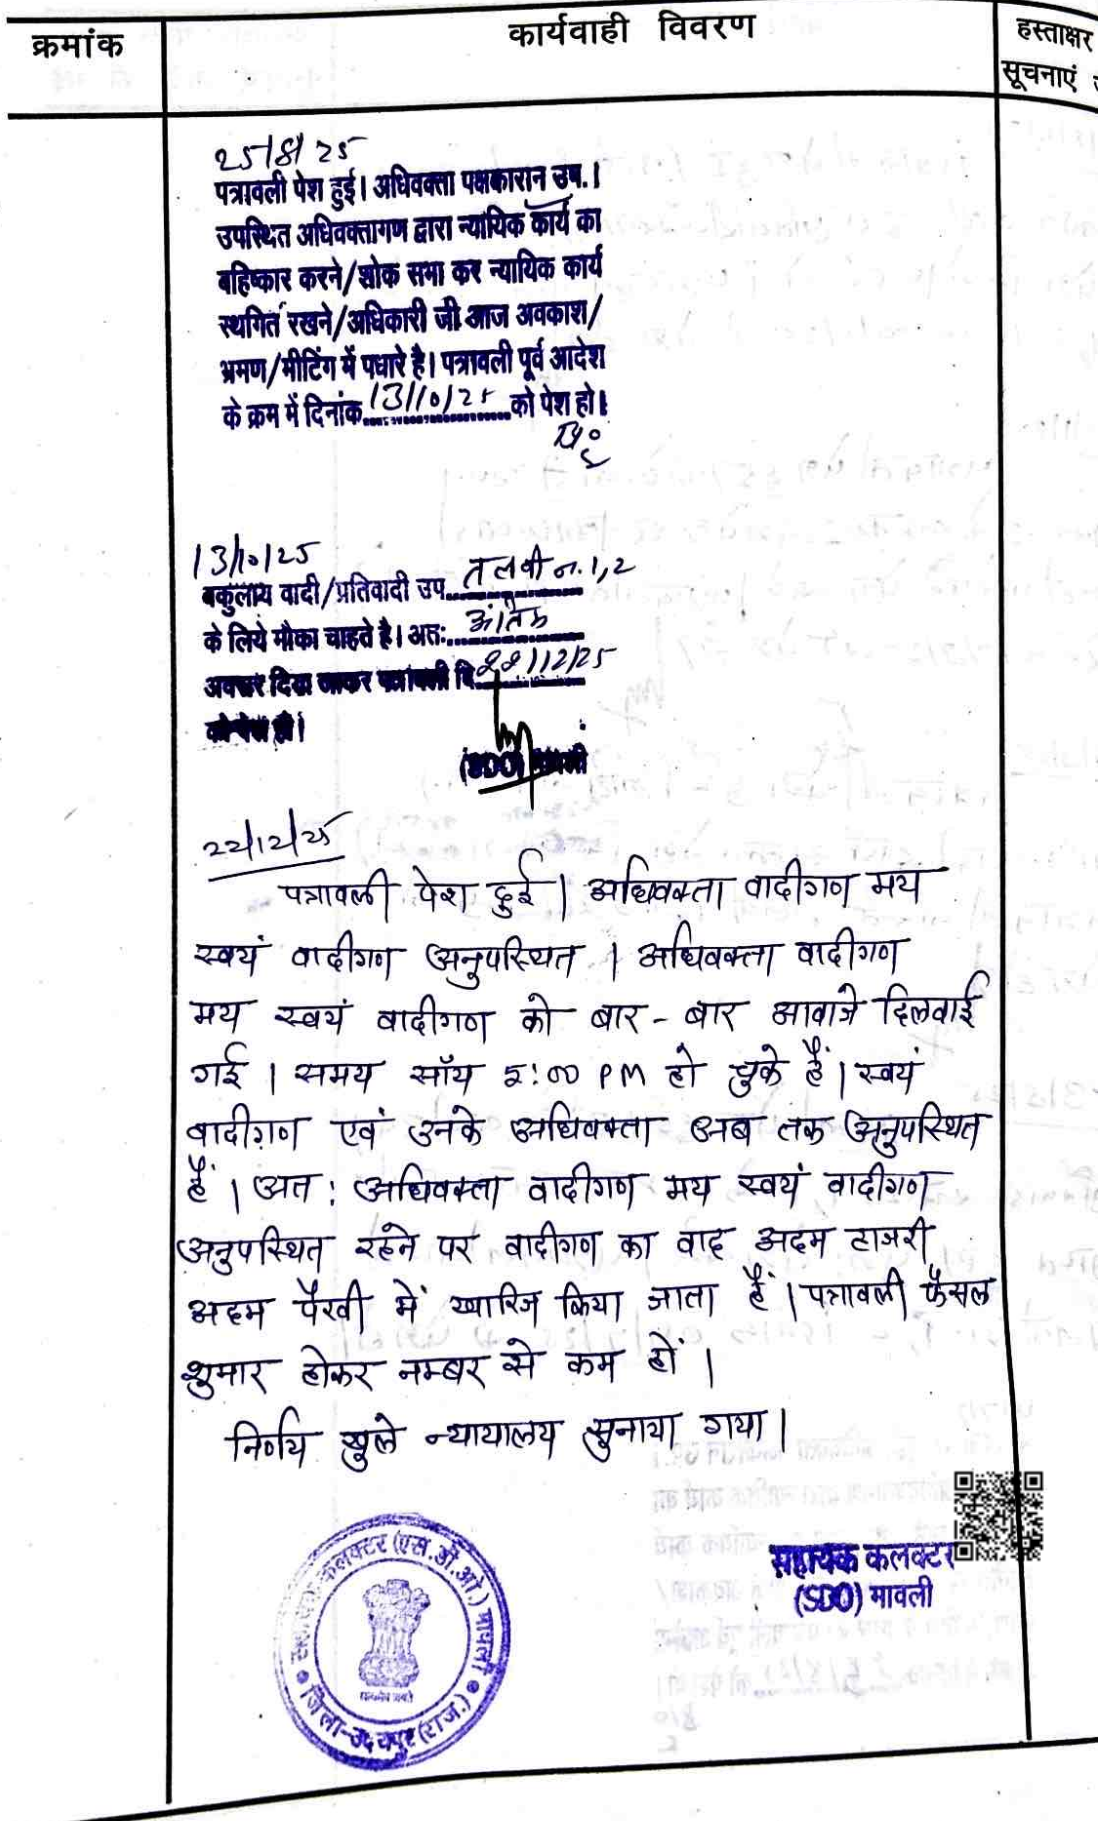 क्रमांक
कार्यवाही विवरण
हस्ताक्षर
सूचनाएं
25/8/25
पत्रावली पेश हुई। अधिवक्ता पक्षकारान उप.।
उपस्थित अधिवक्तागण द्वारा न्यायिक कार्य का
बहिष्कार करने/शोक सभा कर न्यायिक कार्य
स्थगित रखने/अधिकारी जी आज अवकाश/
भ्रमण/मीटिंग में पधारे है। पत्रावली पूर्व आदेश
के क्रम में दिनांक 13/10/25 को पेश हो।
13/10/25
वकुलाय वादी/प्रतिवादी उप. तलवी न. 1,2
के लिये मौका चाहते है। अतः अंतिम
अवसर दिया जाकर पत्रावली दि. 22/12/25
को पेश हो।
(SDO) मावली
22/12/25
पत्रावली पेश हुई। अधिवक्ता वादीगण मय
स्वयं वादीगण अनुपस्थित । अधिवक्ता वादीगण
मय स्वयं वादीगण को बार - बार आवाजे दिलवाई
गई । समय सॉय 5:00 PM हो चुके हैं। स्वयं
वादीगण एवं उनके अधिवक्ता अब तक अनुपस्थित
हैं । अत : अधिवक्ता वादीगण मय स्वयं वादीगण
अनुपस्थित रहने पर वादीगण का वाद अदम हाजरी
अदम पैरवी में खारिज किया जाता हैं । पत्रावली फैसल
शुमार होकर नम्बर से कम हों ।
निर्णय खुले न्यायालय सुनाया गया।
सहायक कलक्टर
(SDO) मावली
कलक्टर (एस.डी.ओ.) मावली
जिला-उदयपुर (राज.)